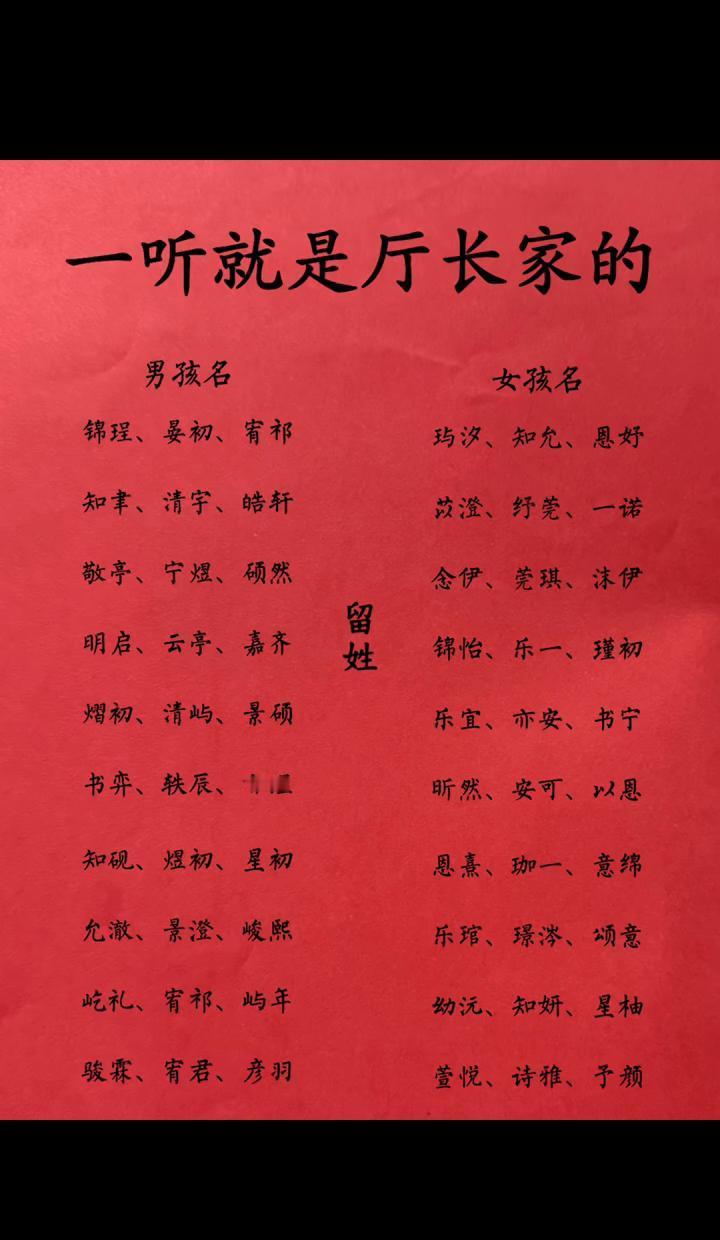 一听就是厅长家的
男孩名
锦珵、晏初、宥祁
知聿、清宇、皓轩
敬亭、宁煜、硕然
明启、云亭、嘉齐
熠初、清屿、景硕
书弈、轶辰、
知砚、煜初、星初
允澈、景澄、峻熙
屹礼、宥祁、屿年
骏霖、宥君、彦羽
留姓
女孩名
玙汐、知允、恩妤
苡澄、纾莞、一诺
念伊、莞琪、沫伊
锦怡、乐一、瑾初
乐宜、亦安、书宁
昕然、安可、以恩
恩熹、珈一、意绵
乐琯、璟涔、颂意
幼沅、知妍、星柚
萱悦、诗雅、予颜